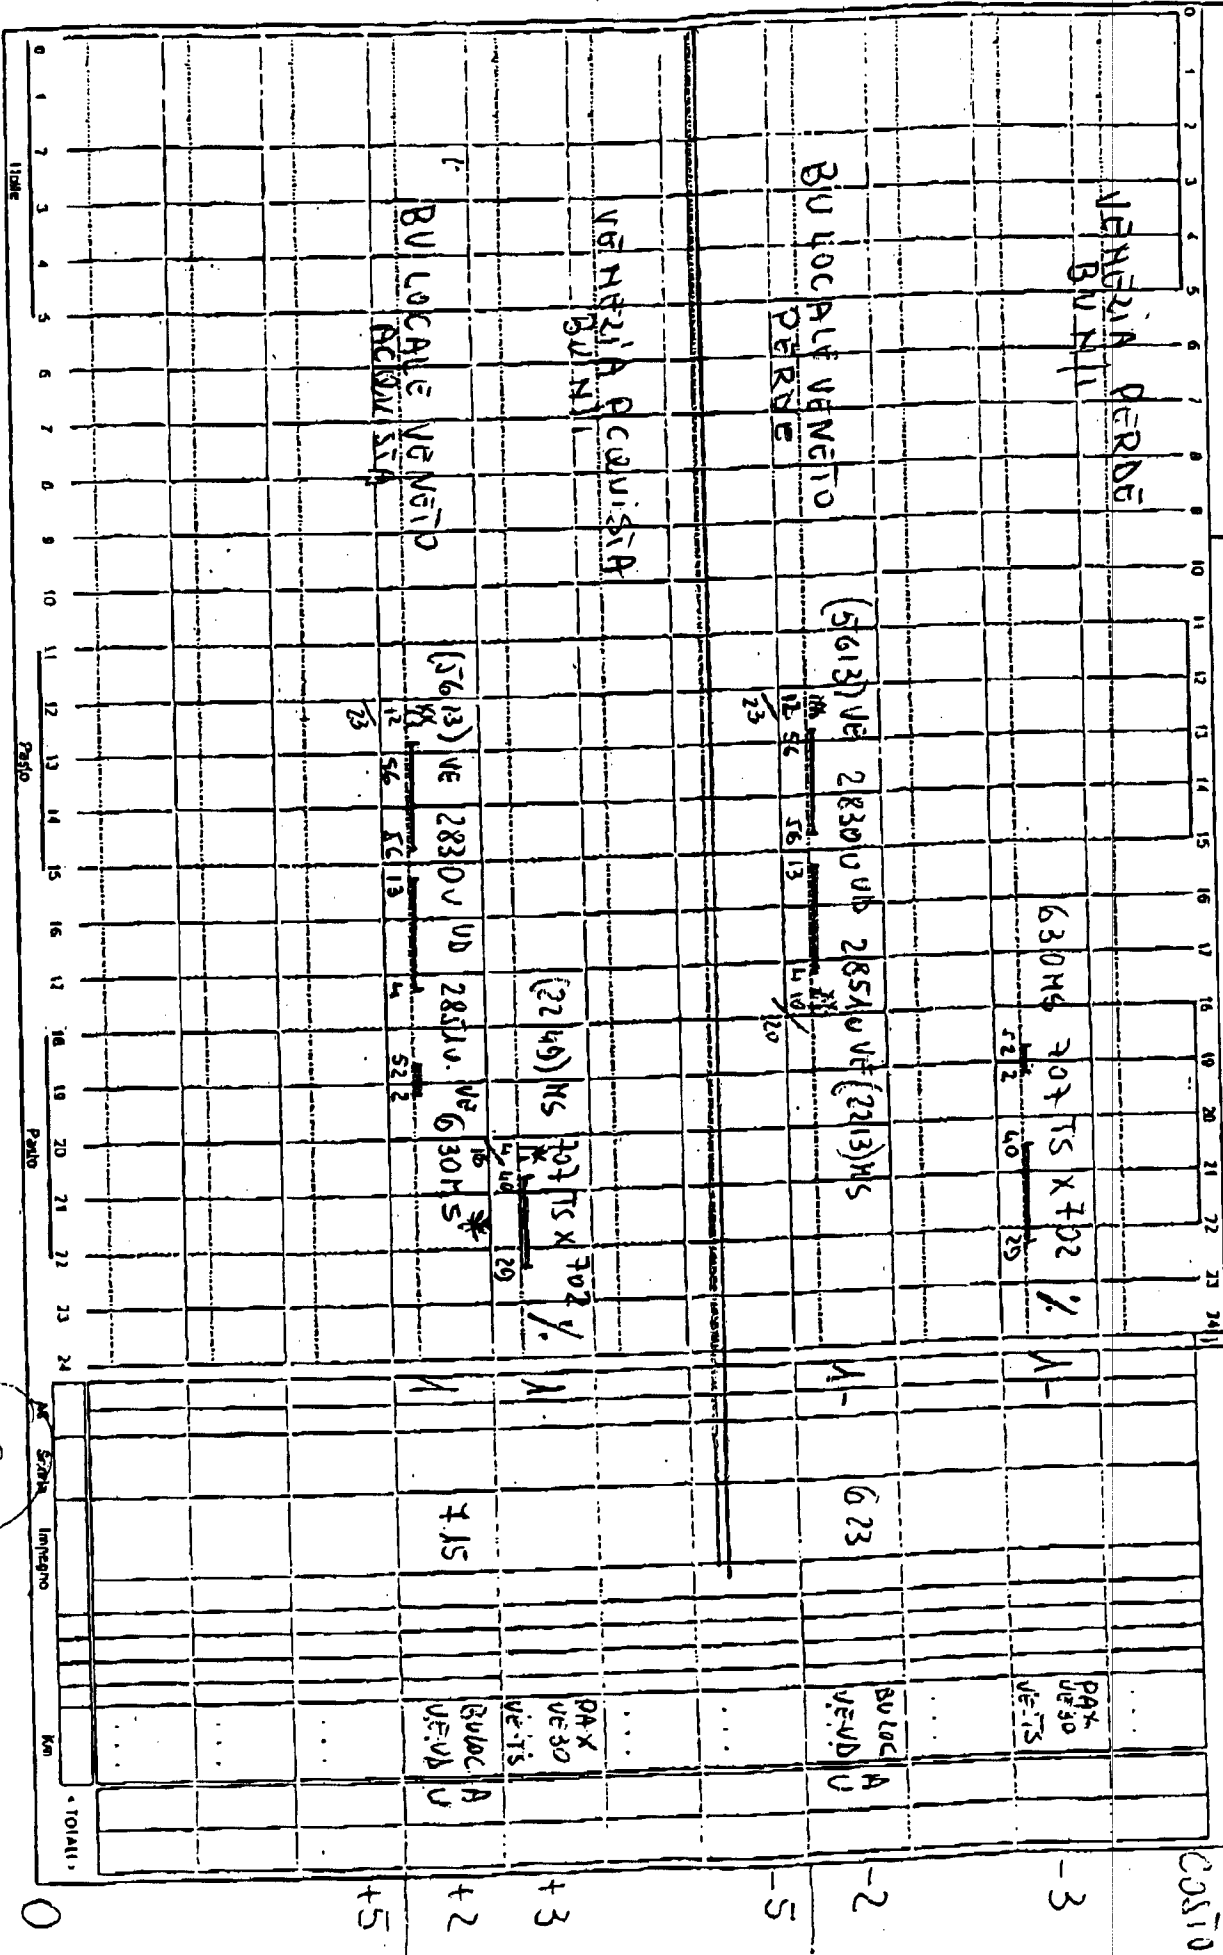 0 1 2 3 4 5 6 7 8 8 10 11 12 13 14 15 16 17 16 19 20 21 22 23 24
COSTO
VENEZIA PERDE
BU N/I
630 MS 707 TS X 702 %
52 2 40 29
1-
PAX
VE 30
VE-TS
-3
BU LOCALE VENETO
PERDE
(5613) VE 2830 V UD 2851 V VE (2213) MS
12 56 56 13 4 10
23 20
1-
6 23
BU LOC A
VE.UD U
-2
-5
VENEZIA ACQUISTA
BU N/I
(2249) MS 707 TS X 702 %
4 40 29
16
1
PAX
VE 30
VE-TS
+3
BU LOCALE VENETO
ACQUISTA
(5613) VE 2830 V UD 2851 V. VE 630 MS *
12 56 56 13 4 52 2
23
1
7.15
BU LOC A
VE.UD U
+2
+5
0 1 2 3 4 5 6 7 8 9 10 11 12 13 14 15 16 17 18 19 20 21 22 23 24
Notte Pasto Pasto
Impegno Km
"TOTALI"
0